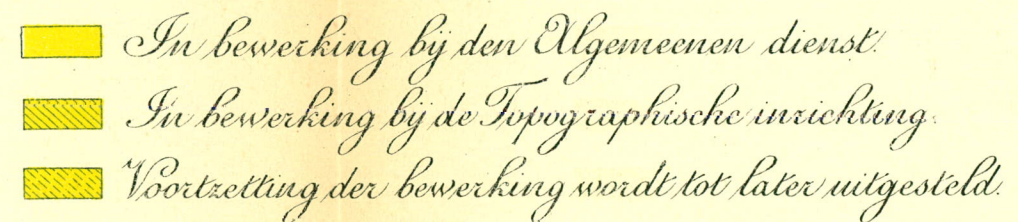 In bewerking bij den Algemeenen dienst.
In bewerking bij de Topographische inrichting.
Voortzetting der bewerking wordt tot later uitgesteld.